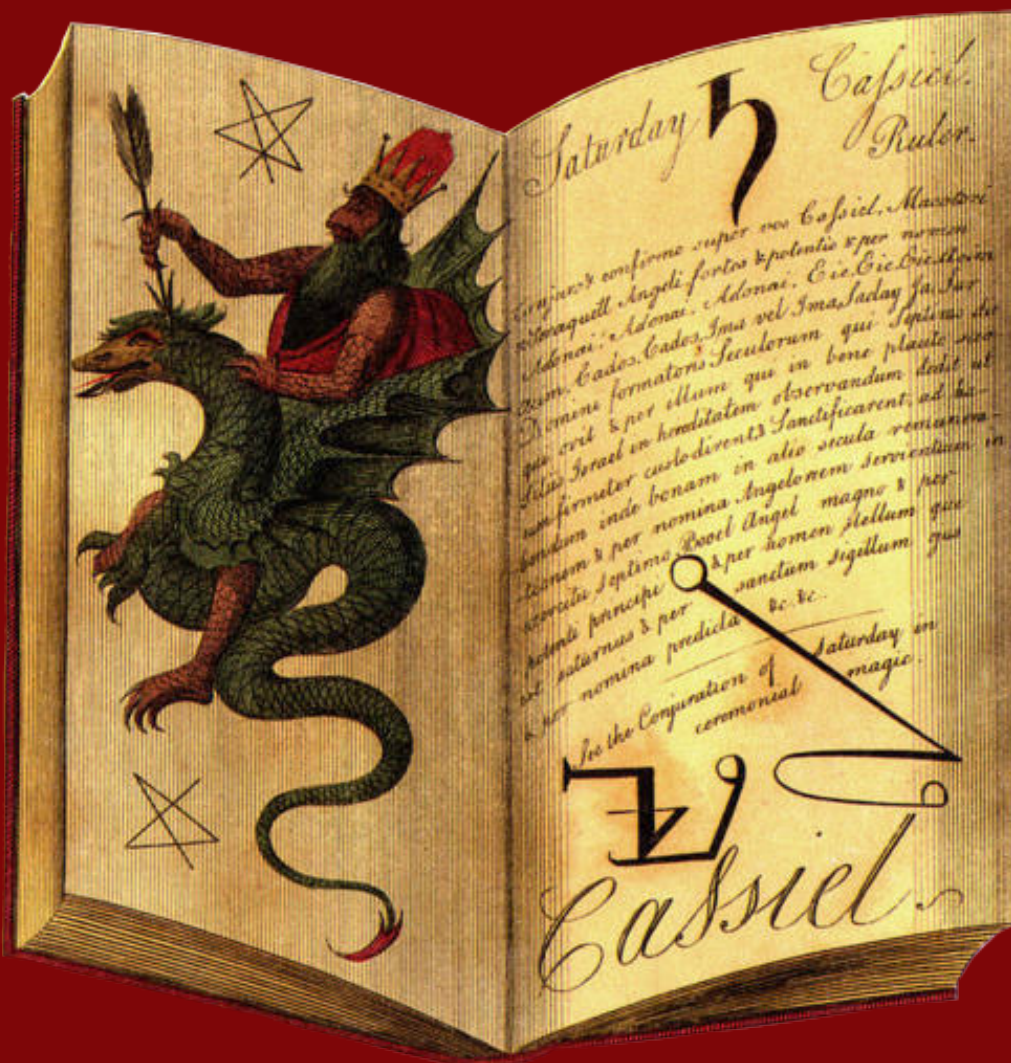 Saturday ♄ Cassiel.
Ruler.
Conjuro & confirmo super vos Cassiel,
Angeli fortes & potentis & per nomen
Adonai, Adonai, Adonai. Eie. Eie. Eie.
Cados, Cados, Ima vel Ima, Saday, Ja, Sar
Domini formatoris Seculorum qui Septimo die
& per illum qui in bene
Israel in hereditatem observandum dedit ut
eum firmiter custodirent & Sanctificarent, ad ha-
bendum inde bonam in alio secula remunera-
tionem & per nomina Angelorem servientium in
exercitu septimo Booel Angel magno & per
potenti principe & per nomen stellum que
est saturnus & per sanctum sigillum
& per nomina predicta &c. &c.
See the Conjuration of Saturday in
ceremonial magic.
Cassiel.